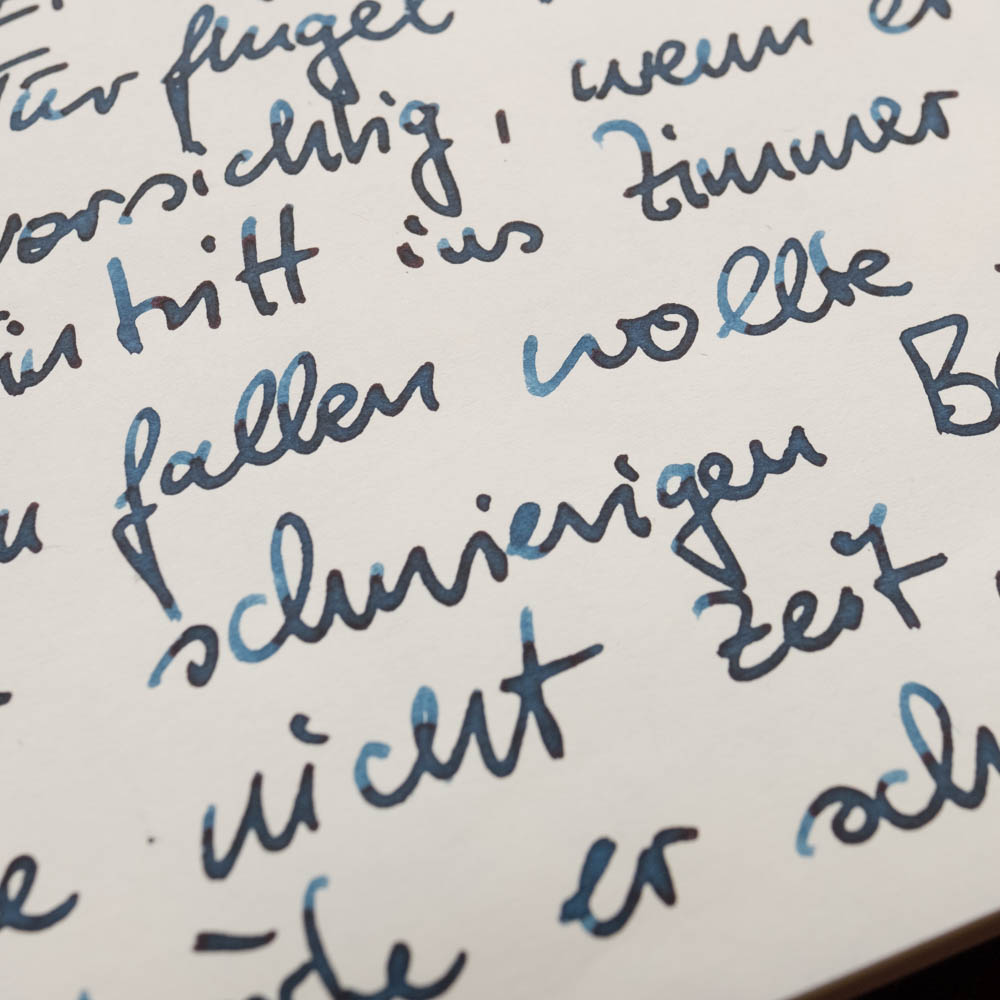 Türflügel
vorsichtig, wenn er
intritt ins Zimmer
n fallen wollte
schwierigen Be
e nicht Zeit
er sch